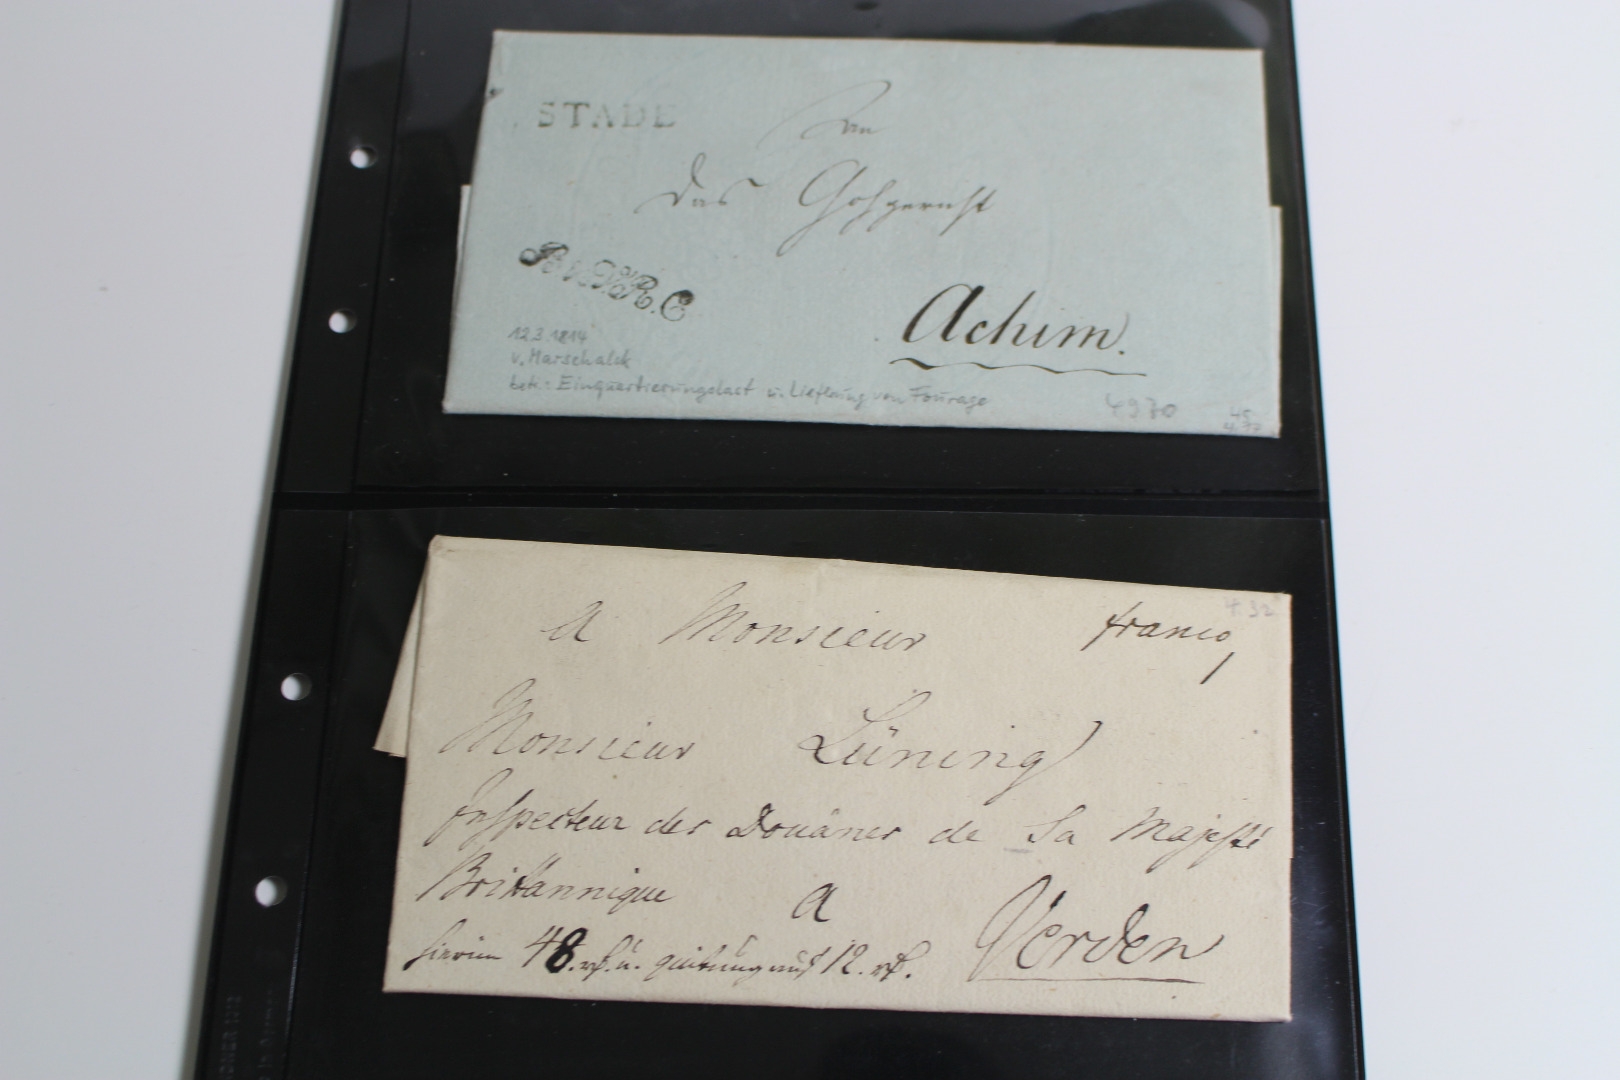 STADE
An
das Gohgericht
Achim.
12.3.1814
v. Marschalck
betr.: Einquartierungslast u. Lieferung von Fourage
4930
4.32
a Monsieur
franco
Monsieur Lüning
Inspecteur des Douânes de Sa Majesté
Brittannique a Verden
hierin 48. u. quitung auf 12.